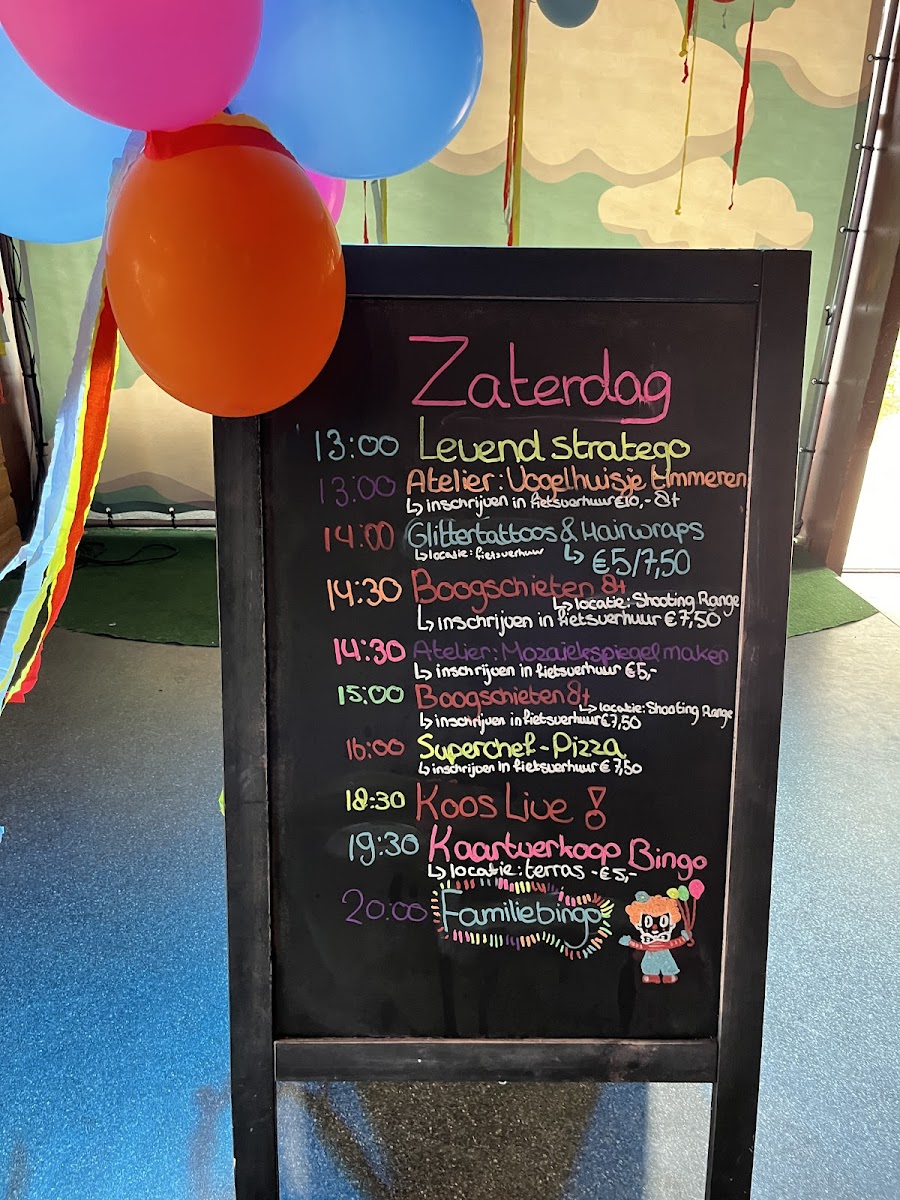 Zaterdag
13:00 Levend stratego
13:00 Atelier: Vogelhuisje timmeren
↳ inschrijven in fietsverhuur €10,- 8+
14:00 Glittertattoos & Hairwraps
↳ locatie: fietsverhuur ↳ €5/7,50
14:30 Boogschieten 8+
↳ locatie: Shooting Range
↳ inschrijven in fietsverhuur €7,50
14:30 Atelier: Mozaiekspiegel maken
↳ inschrijven in fietsverhuur €5,-
15:00 Boogschieten 8+
↳ locatie: Shooting Range
↳ inschrijven in fietsverhuur €7,50
16:00 Superchef - Pizza
↳ inschrijven in fietsverhuur €7,50
18:30 Koos Live!
19:30 Kaartverkoop Bingo
↳ locatie: terras - €5,-
20:00 Familiebingo